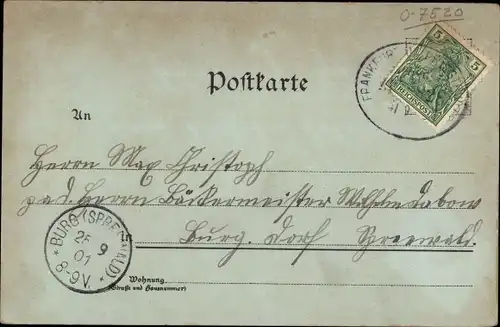 O-7520
Postkarte
5 5
FRANKFURT
REICHSPOST
An
Herrn Max Christoph
p. ad. Herrn Bäckermeister Wilhelm Dabow
Burg. Dorf Spreewald.
BURG (SPREEWALD)
25 9
01
8-9V.
Wohnung
(Straße und Hausnummer)